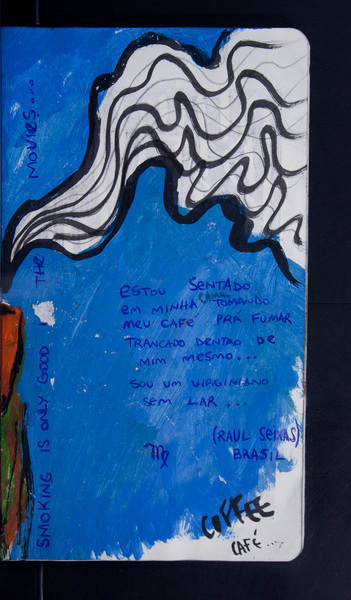 SMOKING IS ONLY GOOD I THE MOVIES...
ESTOU SENTADO
EM MINHA CAMA TOMANDO
MEU CAFÉ PRÁ FUMAR
TRANCADO DENTRO DE
MIM MESMO...
SOU UM VIRGINIANO
SEM LAR...
(RAUL SEIXAS)
BRASIL
♍
COFFEE
CAFÉ...